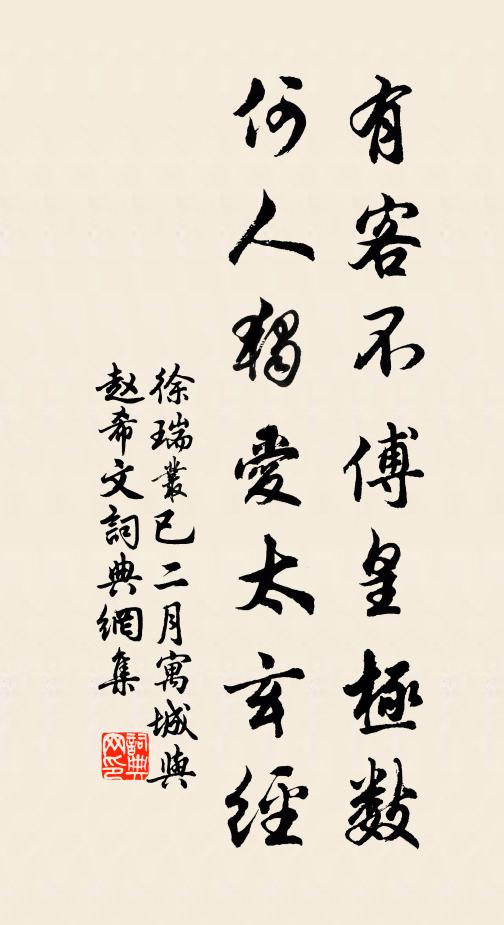 有客不傅皇極數
何人獨愛太玄經
徐瑞叢巳二月寓城與
赵希文詞典網集
詞典
网印